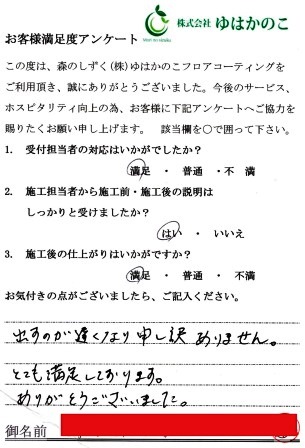 株式会社 ゆはかのこ
Mori no shizuku
お客様満足度アンケート
この度は、森のしずく(株)ゆはかのこフロアコーティングを
ご利用頂き、誠にありがとうございました。今後のサービス、
ホスピタリティ向上の為、お客様に下記アンケートへご協力を
賜りたくお願い申し上げます。 該当欄を○で囲って下さい。
1. 受付担当者の対応はいかがでしたか?
満足 ・ 普通 ・不 満
2. 施工担当者から施工前・施工後の説明は
しっかりと受けましたか?
はい ・ いいえ
3. 施工後の仕上がりはいかがですか?
満足 ・ 普通 ・ 不満
お気付きの点がございましたら、ご記入ください。
出すのが遅くなり申し訳ありません。
とても満足しております。
ありがとうございました。
御名前